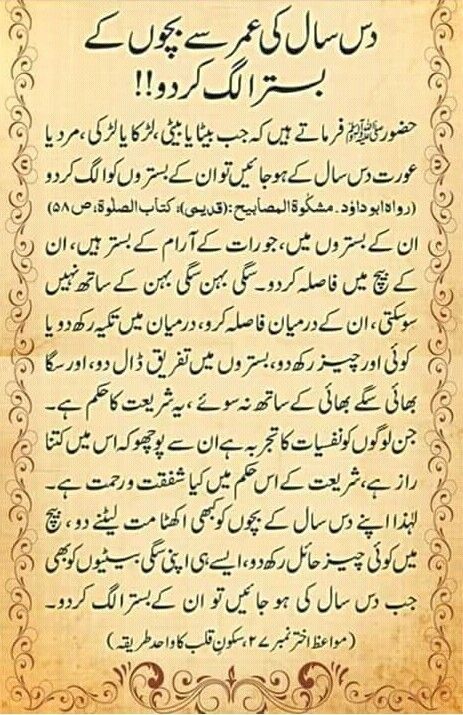 دس سال کی عمر سے بچوں کے
بستر الگ کر دو!!
حضور ﷺ فرماتے ہیں کہ جب بیٹا یا بیٹی، لڑکا یا لڑکی، مرد یا
عورت دس سال کے ہو جائیں تو ان کے بستروں کو الگ کر دو
(رواہ ابو داؤد۔ مشکوۃ المصابیح: (قدیمی)، کتاب الصلوۃ، ص ۵۸)
ان کے بستروں میں، جو رات کے آرام کے بستر ہیں، ان
کے بیچ میں فاصلہ کر دو۔ سگی بہن سگی بہن کے ساتھ نہیں
سو سکتی، ان کے درمیان فاصلہ کرو، درمیان میں تکیہ رکھ دو یا
کوئی اور چیز رکھ دو، بستروں میں تفریق ڈال دو، اور سگا
بھائی سگے بھائی کے ساتھ نہ سوئے، یہ شریعت کا حکم ہے۔
جن لوگوں کو نفسیات کا تجربہ ہے ان سے پوچھو کہ اس میں کتنا
راز ہے، شریعت کے اس حکم میں کیا شفقت و رحمت ہے۔
لہٰذا اپنے دس سال کے بچوں کو کبھی اکٹھا مت لیٹنے دو، بیچ
میں کوئی چیز حائل رکھ دو، ایسے ہی اپنی سگی بیٹیوں کو بھی
جب دس سال کی ہو جائیں تو ان کے بستر الگ کر دو۔
(مواعظ اختر نمبر ۲۷، سکونِ قلب کا واحد طریقہ)